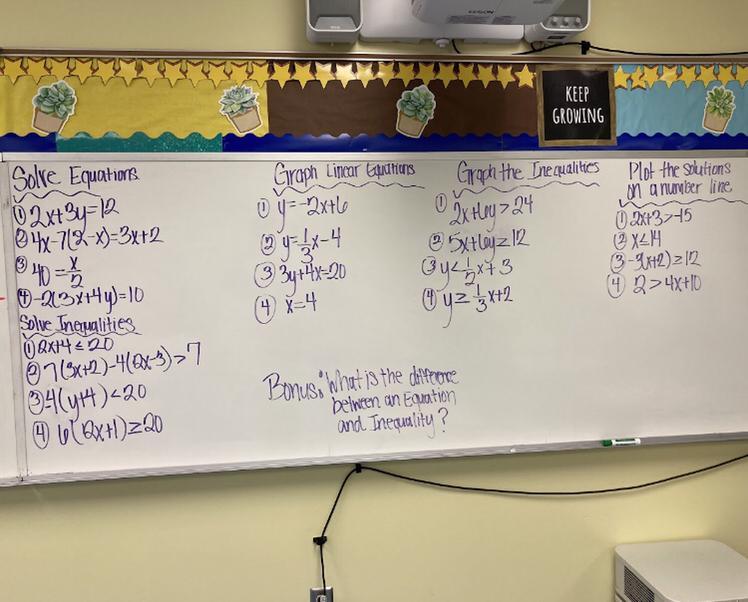 EPSON
KEEP
GROWING
Solve Equations
① 2x+3y=12
② 4x-7(2-x)=3x+2
③ 40=x/2
④ -2(3x+4y)=10
Solve Inequalities
① 2x+4≤20
② 7(3x+2)-4(2x-3)>7
③ -4(y+4)<20
④ 6(12x+1)≥20
Graph Linear Equations
① y=-2x+6
② y=1/3x-4
③ 3y+4x=20
④ x=4
Graph the Inequalities
① 2x+6y>24
② 5x+6y≥12
③ y<1/2x+3
④ y≥1/3x+2
Plot the Solutions
on a number line
① 2x+3>-15
② x≤14
③ -3(x+2)≥12
④ 2>4x+10
Bonus: "What is the difference
between an Equation
and Inequality?